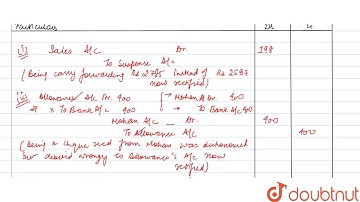 Particulars Dr. Cr.
(i) Sales A/c Dr. 198
To Suspense A/c
(Being carry forwarding Rs 2785 instead of Rs 2587
now rectified)
(iii) Allowance A/c Dr. 400 Mohan A/c Dr. 400
To Bank A/c 400 To Bank A/c 400
Mohan A/c Dr. 400
To Allowance A/c 400
(Being a cheque recd from Mohan was dishonoured
debited wrongly to Allowance's A/c now
rectified)
doubtnut